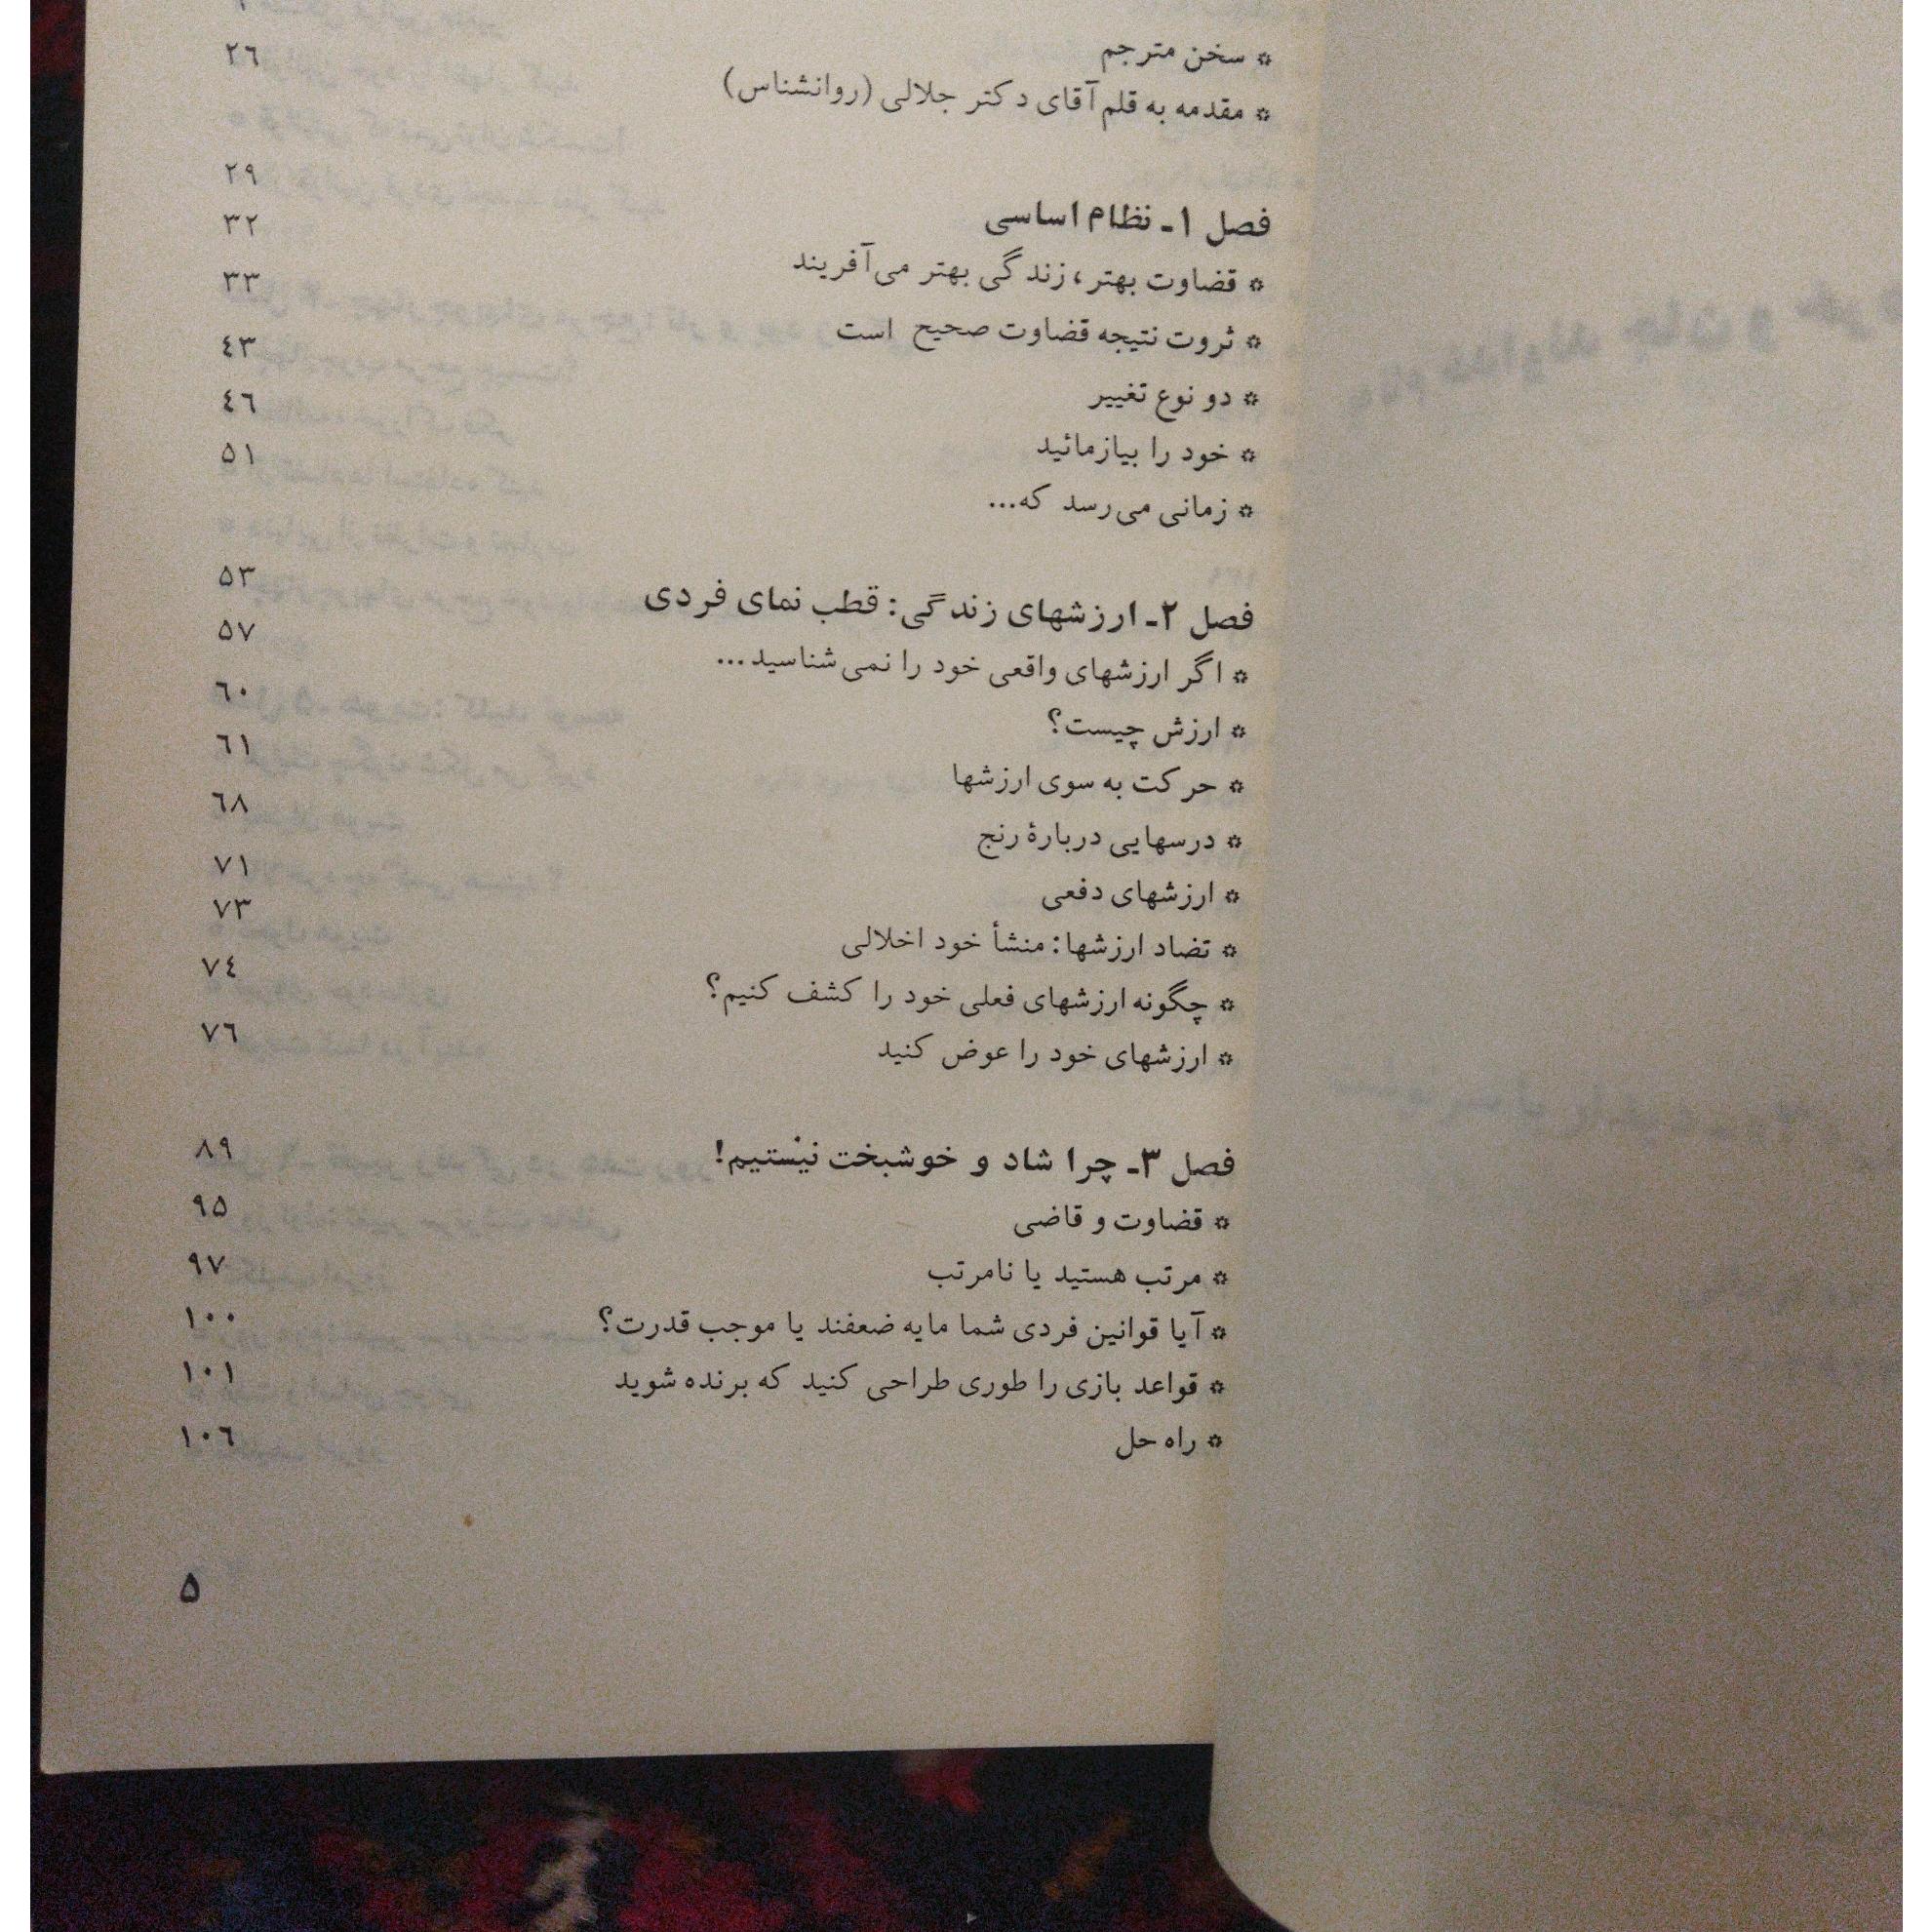 * سخن مترجم
* مقدمه به قلم آقای دکتر جلالی (روانشناس) ۲۶
فصل ۱ـ نظام اساسی ۲۹
* قضاوت بهتر، زندگی بهتر می‌آفریند ۳۲
* ثروت نتیجه قضاوت صحیح است ۳۳
* دو نوع تغییر ۴۳
* خود را بیازمائید ۴۶
* زمانی می‌رسد که... ۵۱
فصل ۲ـ ارزشهای زندگی: قطب نمای فردی ۵۳
* اگر ارزشهای واقعی خود را نمی‌شناسید... ۵۷
* ارزش چیست؟ ۶۰
* حرکت به سوی ارزشها ۶۱
* درسهایی دربارهٔ رنج ۶۸
* ارزشهای دفعی ۷۱
* تضاد ارزشها: منشأ خود اخلالی ۷۳
* چگونه ارزشهای فعلی خود را کشف کنیم؟ ۷۴
* ارزشهای خود را عوض کنید ۷۶
فصل ۳ـ چرا شاد و خوشبخت نیستیم! ۸۹
* قضاوت و قاضی ۹۵
* مرتب هستید یا نامرتب ۹۷
* آیا قوانین فردی شما مایه ضعفند یا موجب قدرت؟ ۱۰۰
* قواعد بازی را طوری طراحی کنید که برنده شوید ۱۰۱
* راه حل ۱۰۶
۵